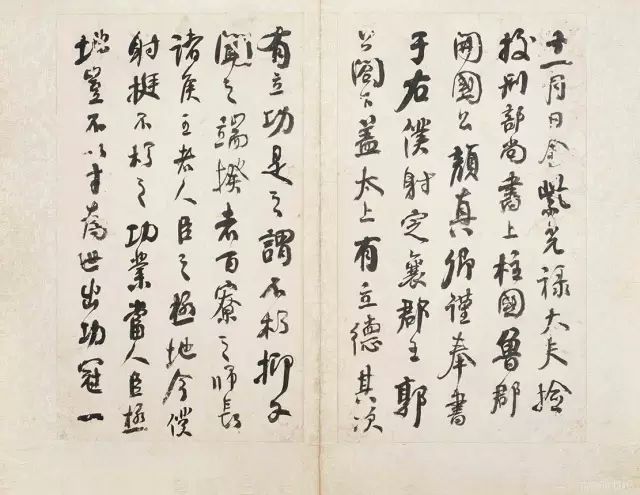 十一月日金紫光禄大夫撿
挍刑部尚書上柱國魯郡
開國公顏真卿謹奉書
于右僕射定襄郡王郭
公閣下蓋太上有立德其次
有立功是之謂不朽抑又
聞之端揆者百寮之師長
諸侯王者人臣之極地今僕
射挺不朽之功業當人臣極
地豈不以才為世出功冠一